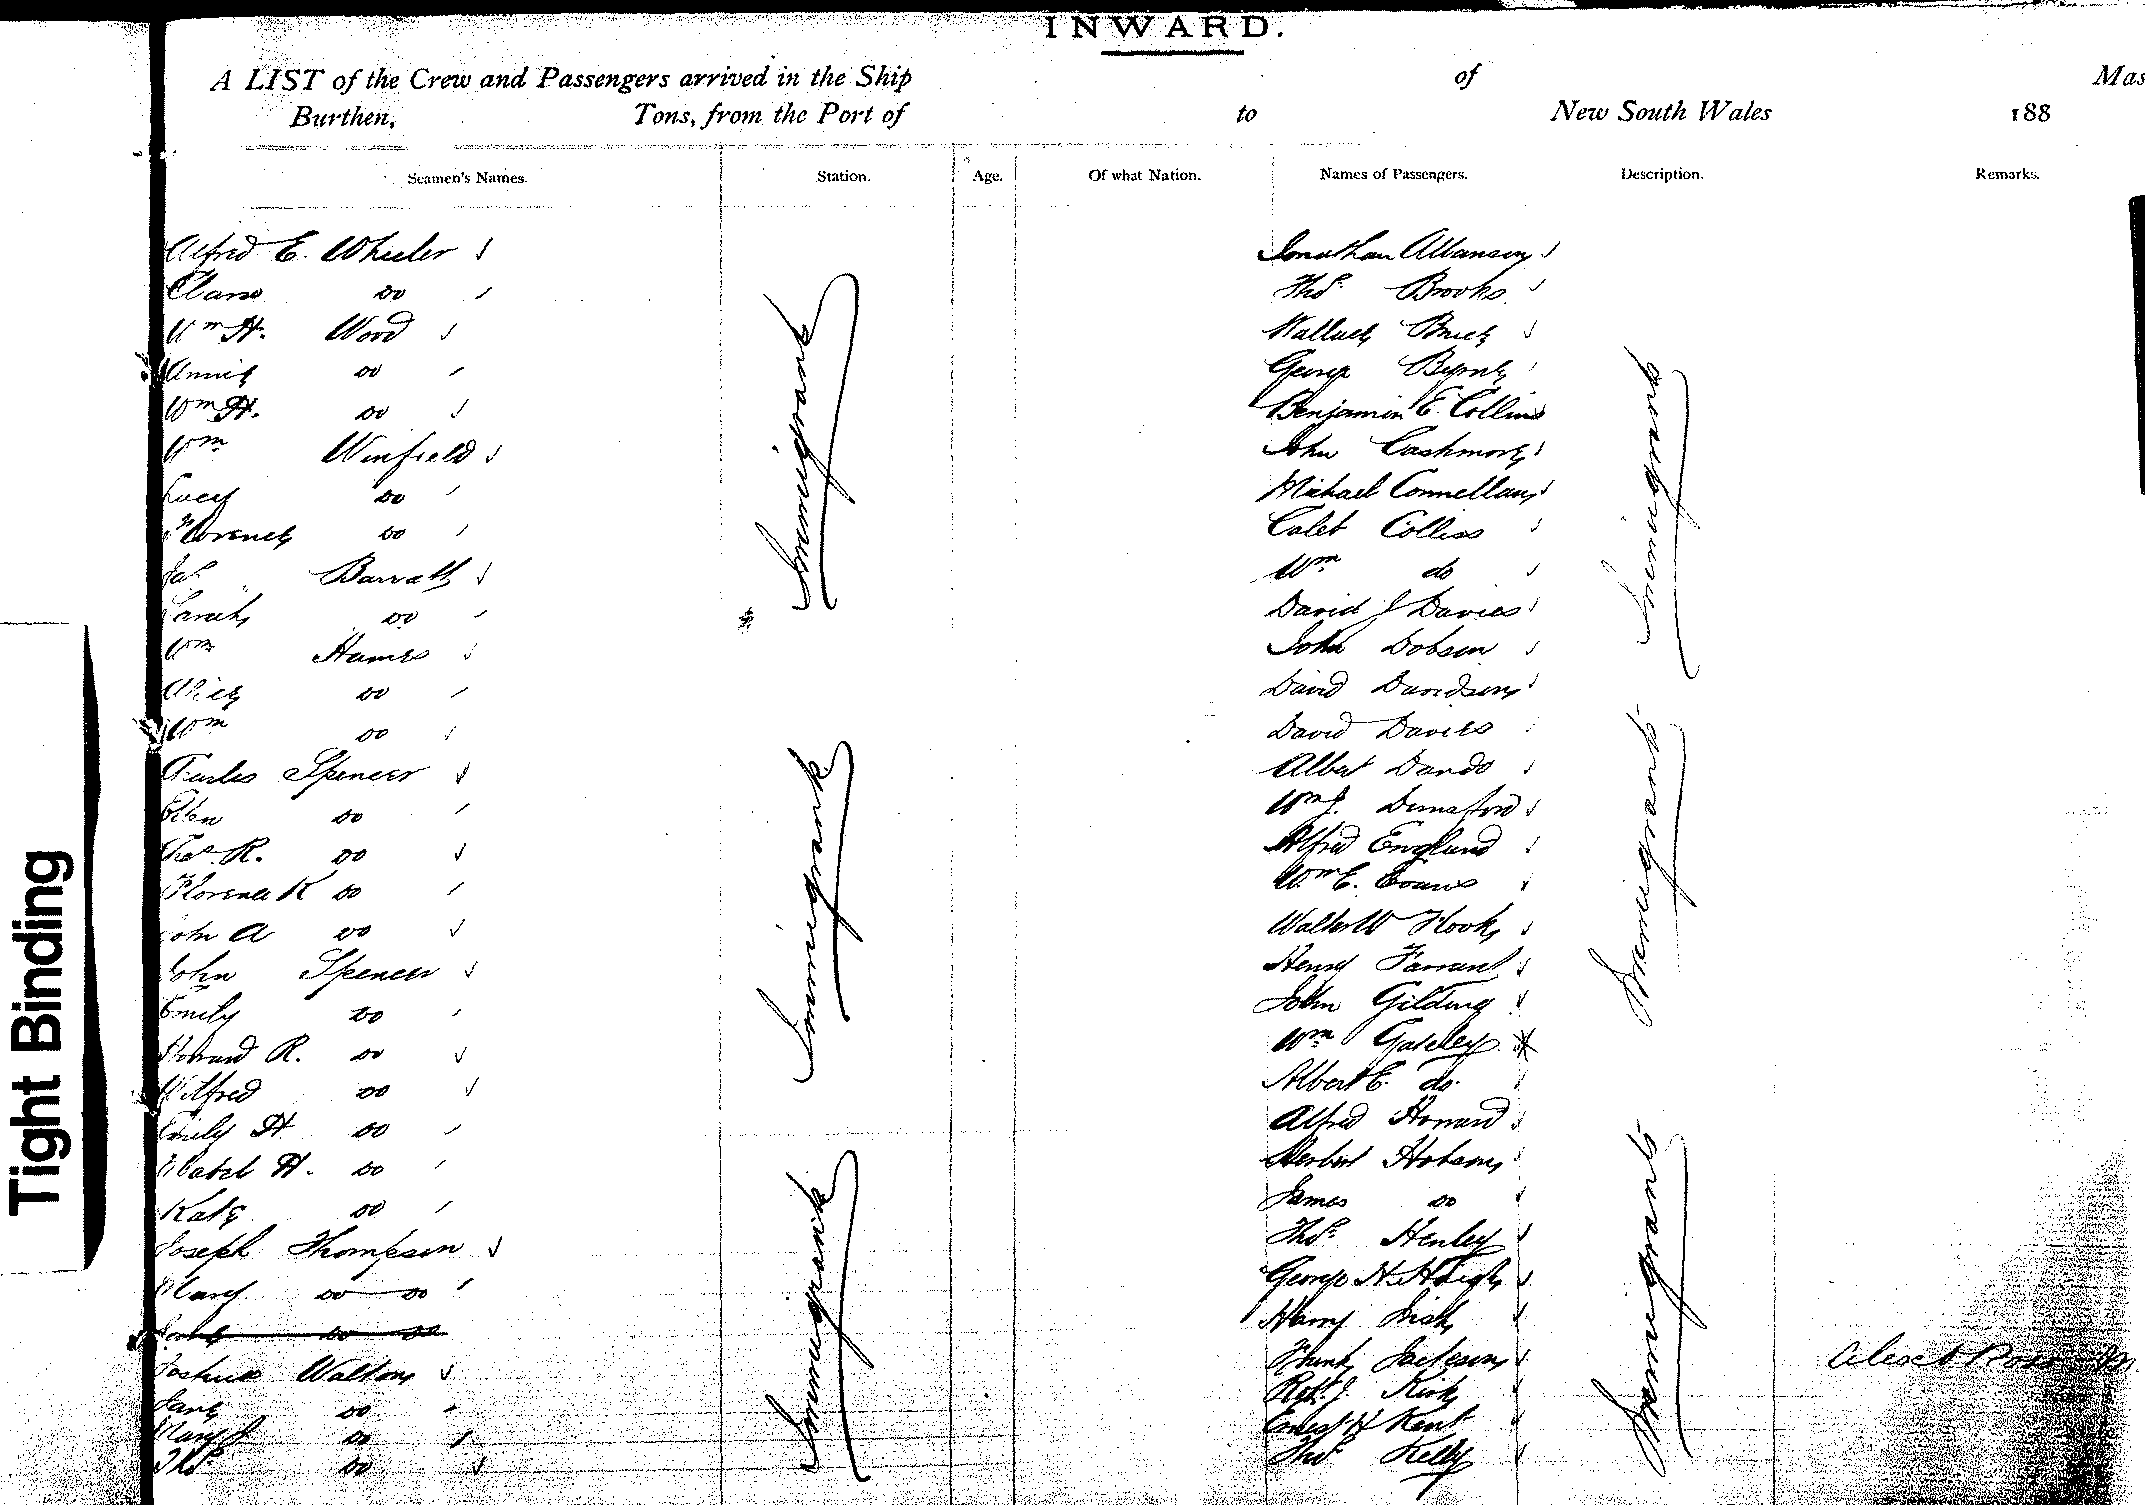 INWARD.
A LIST of the Crew and Passengers arrived in the Ship of Mas
Burthen, Tons, from the Port of to New South Wales 188
Seamen's Names. Station. Age. Of what Nation. Names of Passengers. Description. Remarks.
Alfred E. Wheeler
Clara do
Wm H. Wood
Annie do
Wm H. do
Wm Winfield
Lucy do
Florence do
Jas Barratt
Sarah do
Wm Hames
Alice do
Wm do
Charles Spencer
Ellen do
Thos R. do
Florence K do
John A do
John Spencer
Emily do
Howard R. do
Wilfred do
Emily H do
Mabel H. do
Kate do
Joseph Thompson
Mary do do
do do
Joshua Walton
Jane do
Mary J do
Thos do
Immigrants
Immigrants
Immigrants
Jonathan Allanson
Thos Brooks
Wallace Brice
George Byrne
Benjamin E. Collins
John Cashmore
Michael Connellan
Caleb Colliss
Wm do
David J Davies
John Dobson
David Davidson
David Davies
Albert Dando
Wm J. Dunsford
Alfred England
Wm C. Evans
Walter W Hook
Henry Farrant
John Gilding
Wm Gateley
Albert E. do
Alfred Howard
Herbert Hobson
James do
Thos Henley
George H. Haigh
Harry Irish
Frank Jackson
Robt J. Kirk
Ernest H Kent
Thos Kelly
Immigrants
Immigrants
Immigrants
Tight Binding